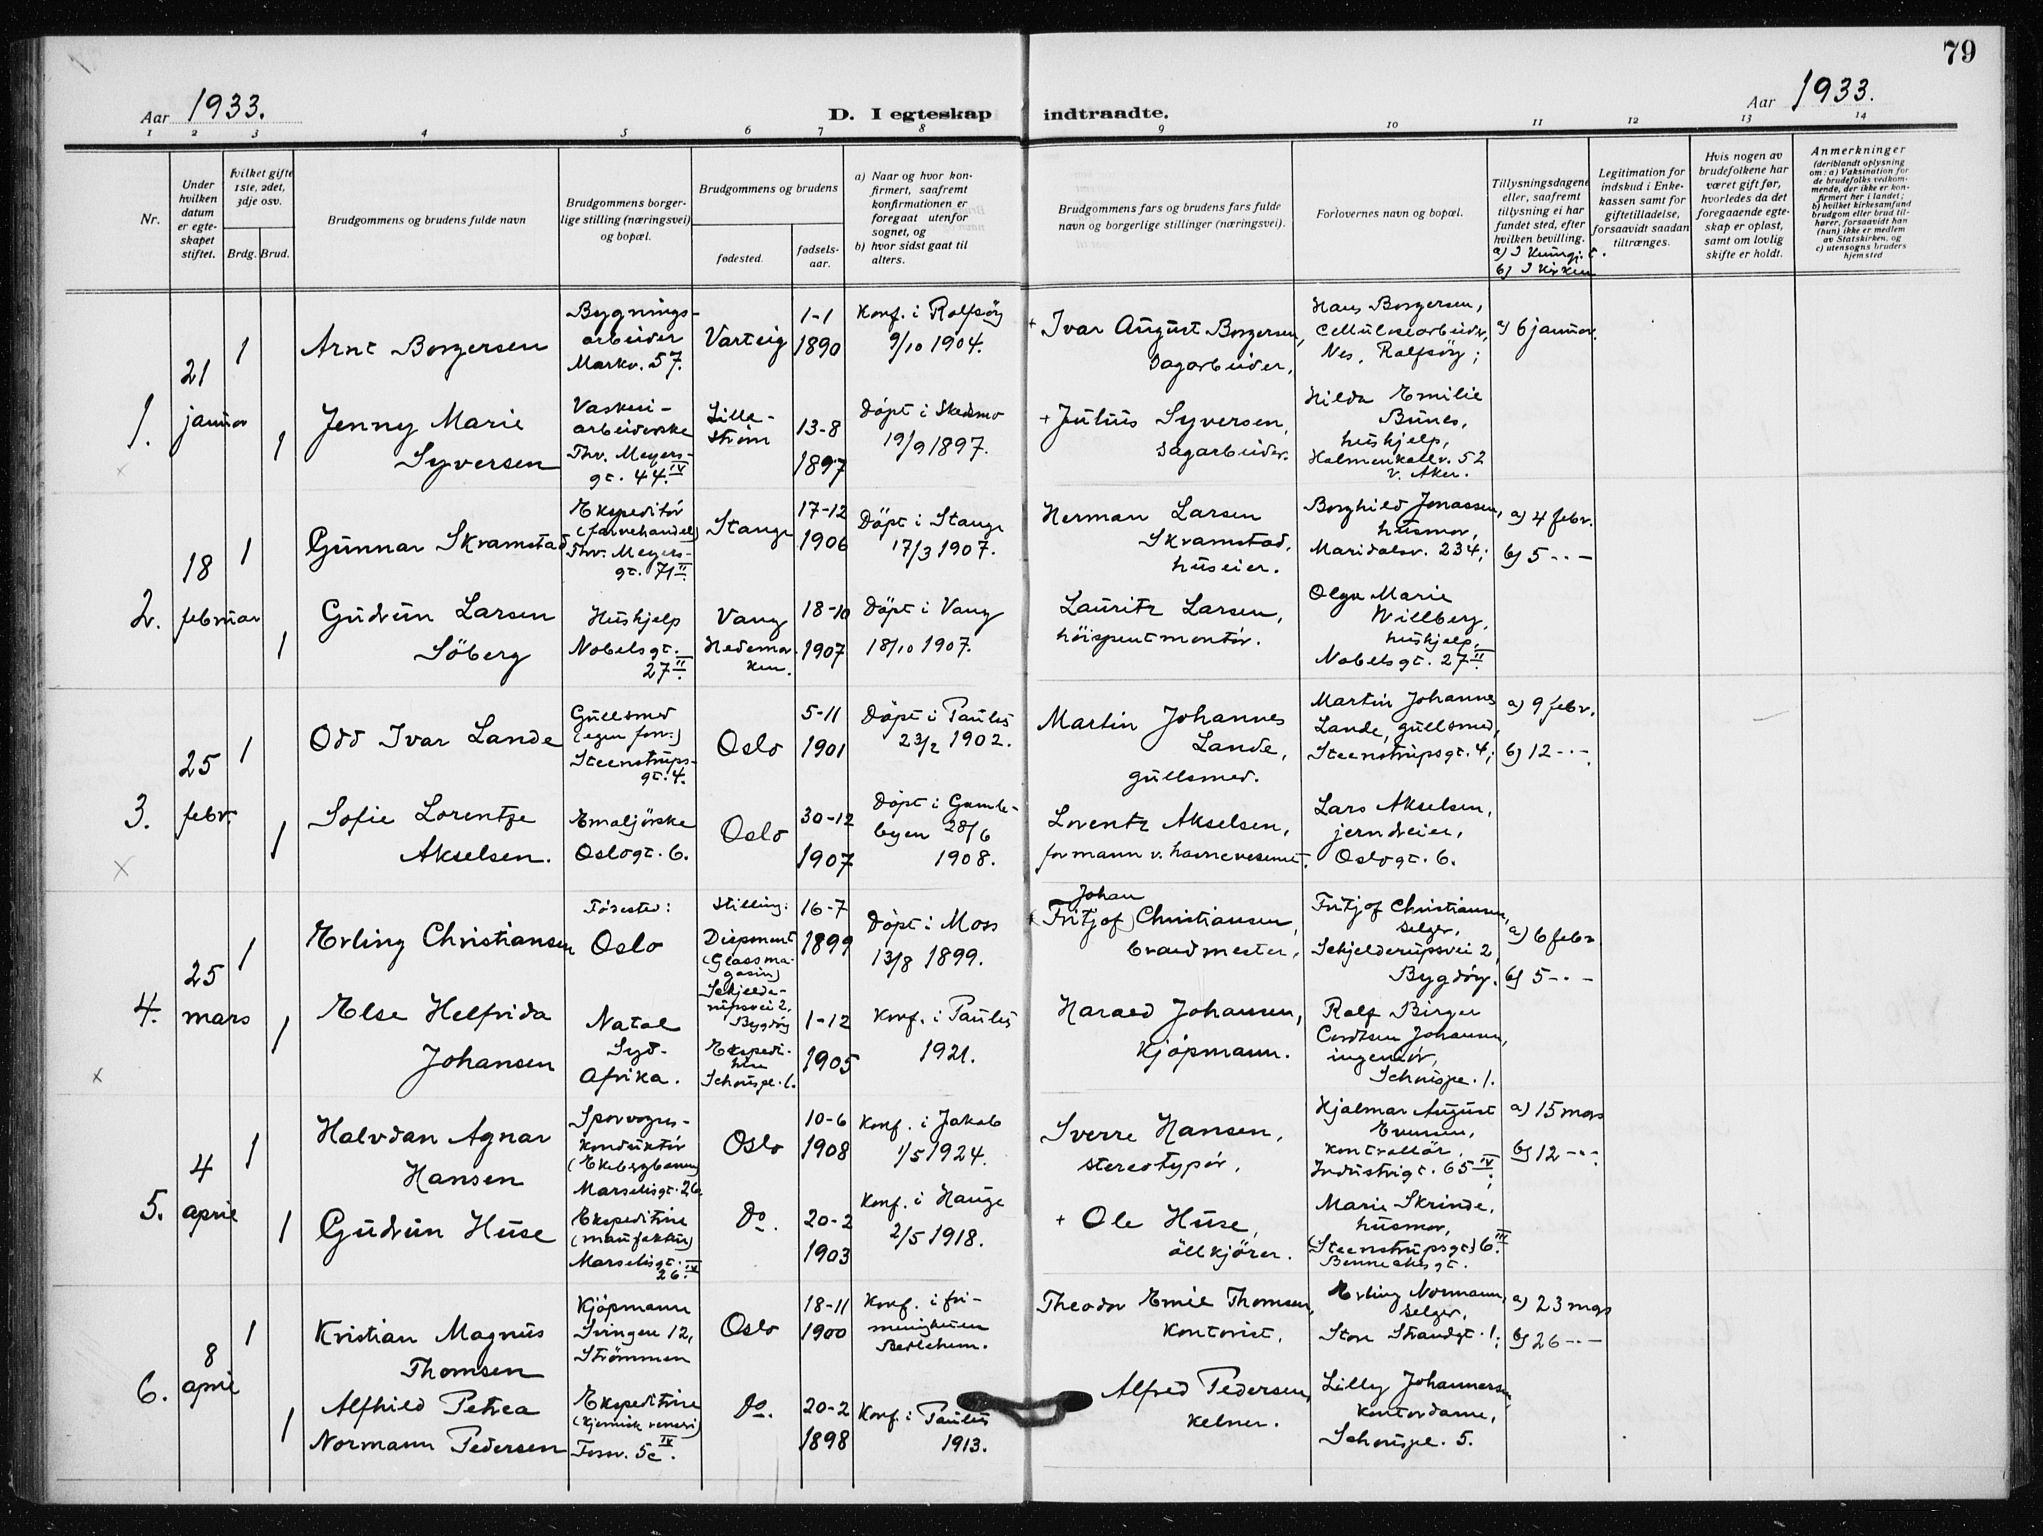 79
Aar 1933.
D. I egteskap indtraadte.
Aar 1933.
1 2 3 4 5 6 7 8 9 10 11 12 13 14
Nr.
Under hvilken datum er egteskapet stiftet.
Hvilket gifte 1ste, 2det, 3dje osv.
Brdg. Brud.
Brudgommens og brudens fulde navn
Brudgommens borgerlige stilling (næringsvei) og bopæl.
Brudgommens og brudens
fødested.
fødselsaar.
a) Naar og hvor konfirmert, saafremt konfirmationen er foregaat utenfor sognet, og
b) hvor sidst gaat til alters.
Brudgommens fars og brudens fars fulde navn og borgerlige stillinger (næringsvei).
Forlovernes navn og bopæl.
Tillysningsdagene eller, saafremt tillysning ei har fundet sted, efter hvilken bevilling.
a) I Kungj. t.
b) I Kirken
Legitimation for indskud i Enkekassen samt for giftetilladelse, forsaavidt saadan tiltrænges.
Hvis nogen av brudefolkene har været gift før, hvorledes da det foregaaende egteskap er opløst, samt om lovlig skifte er holdt.
Anmerkninger
(deriblandt oplysning om: a) Vaksination for de brudefolks vedkommende, der ikke er konfirmert her i landet; b) hvilket kirkesamfund brudgom eller brud tilhører, forsaavidt han (hun) ikke er medlem av Statskirken, og c) utensogns bruders hjemsted
1.
21
januar
1
Arnt Borgersen
Bygnings-
arbeider
Markv. 57.
Varteig
1-1
1890
Konf. i Rolfsöy
9/10 1904.
+ Ivar August Borgersen,
sagarbeider.
Hans Borgersen,
cellulosearbeider,
Nes, Rolfsöy;
a) 6 januar.
1
Jenny Marie
Syversen
Vaskeri-
arbeiderske
Thv. Meyers-
gt. 44 IV
Lille-
ström
13-8
1897
Döpt i Skedsmo
19/9 1897.
+ Julius Syversen,
sagarbeider.
Hilda Emilie
Bunes,
hushjelp,
Holmenkollv. 52
v. Aker.
2.
18
februar
1
Gunnar Skramstad
Ekspeditör
(farvehandel)
Thv. Meyers-
gt. 71 II.
Stange
17-12
1906
Döpt i Stange
17/3 1907.
Herman Larsen
Skramstad,
huseier.
Borghild Jonassen,
husmor,
Maridalsv. 234;
a) 4 febr.
b) 5 -.-
1
Gudrun Larsen
Söberg
Hushjelp
Nobelsgt.
27 II.
Vang
Hedemar-
ken.
18-10
1907
Döpt i Vang
18/10 1907.
Lauritz Larsen,
höispentmontör.
Olga Marie
Willberg,
hushjelp,
Nobelsgt. 27 II.
3.
25
febr.
1
Odd Ivar Lande
Gullsmed
(egen forr.)
Steenstrups-
gt. 4.
Oslo
5-11
1901
Döpt i Paulus
23/2 1902.
Martin Johannes
Lande,
gullsmed.
Martin Johannes
Lande, gullsmed,
Steenstrupsgt. 4;
a) 9 febr.
b) 12 -.-
1
Sofie Lorentze
Akselsen.
Emaljörske
Oslogt. 6.
Oslo
30-12
1907
Döpt i Gamle-
byen 28/6
1908.
Lorentz Akselsen,
formann v. havnevesenet.
Lars Akselsen,
jerndreier,
Oslogt. 6.
4.
25
mars
1
Erling Christiansen
Födested:
Oslo
Stilling:
Disponent
(Glassma-
gasin)
Schjelde-
rupsvei 2,
Bygdöy
16-7
1899
Döpt i Moss
13/8 1899.
Johan
Fritjof Christiansen,
brandmester.
Fritjof Christiansen,
selger,
Schjelderupsvei 2,
Bygdöy.
a) 6 febr.
b) 5 -.-
1
Else Helfrida
Johansen
Natal
Syd-
Afrika.
Ekspedi-
trise
Schouspl. 1.
1-12
1905
Konf. i Paulus
1921.
Harald Johansen,
Kjöpmann.
Rolf Birger
Cordtsen Johansen,
ingeniör,
Schouspl. 1.
5.
4
april
1
Halvdan Agnar
Hansen
Sporvogns-
konduktör
(Ekebergbanen)
Marselisgt. 26
Oslo
10-6
1908
Konf. i Jakob
1/5 1924.
Sverre Hansen,
stereotypör.
Hjalmar August
Evensen,
kontrollör,
Industrigt. 65 IV;
a) 15 mars
b) 12 -.-
1
Gudrun Huse
Ekspeditrise
(manufaktur)
Marselisgt.
26 IV
Do.
20-2
1903
Konf. i Hauge
2/5 1918.
+ Ole Huse,
ölkjörer.
Marie Skrinde,
husmor,
(Steenstrupsgt.) 6 III
Bennechesgt.
6.
8
april
1
Kristian Magnus
Thomsen
Kjöpmann
Svingen 12,
Strömmen
Oslo
18-11
1900
Konf. i fri-
menigheten
Betlehem.
Theodor Emil Thomsen,
Kontorist.
Erling Normann,
selger,
Store Strandgt. 1;
a) 23 mars
b) 26 -.-
1
Alfhild Petrea
Normann Pedersen
Ekspeditrise
(kjemisk renseri)
Fossv. 5c IV.
Do.
20-2
1898
Konf. i Paulus
1913.
Alfred Pedersen,
kelner.
Lilly Johannersen,
kontordame,
Schouspl. 5.